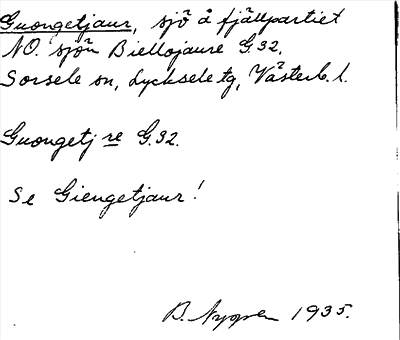 Guongetjaur, sjö å fjällpartiet
NO. sjön Biellojaure G.32.
Sorsele sn, Lycksele tg, Västerb. l.
Guongetj re G.32.
Se Giengetjaur!
B. Nygren 1935.